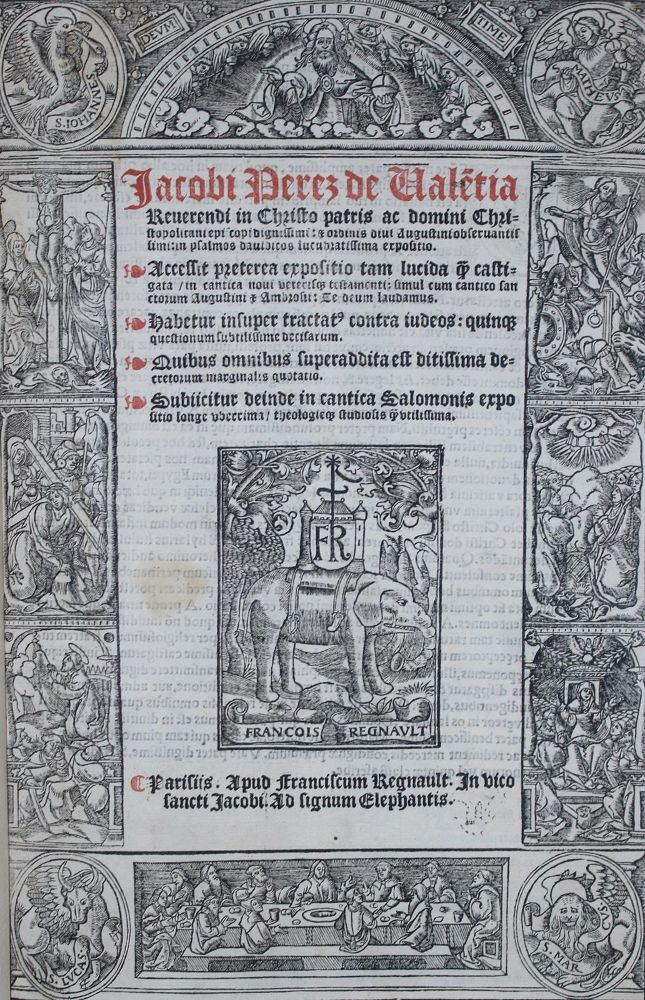 DEVM
TIME
S. IOHANNES
MATHEVS
Jacobi Perez de Ualẽtia
Reuerendi in Christo patris ac domini Chri-
stopolitani epi copi dignissimi: ⁊ ordinis diui Augustini obseruantis
simi: in psalmos dauidicos lucubratissima expositio.
Accessit preterea expositio tam lucida q̃ casti-
gata / in cantica noui veterisq; testamenti: simul cum cantico san
ctorum Augustini ⁊ Ambrosii: Te deum laudamus.
Habetur insuper tractatꝰ contra iudeos: quinq;
questionum subtilissime decisarum.
Quibus omnibus superaddita est ditissima de-
cretorum marginalis quotatio.
Subiicitur deinde in cantica Salomonis expo
sitio longe vberrima / theologieq; studiosis q̃ vtilissima.
FR
FRANCOIS REGNAULT
Parisiis. Apud Franciscum Regnault. In vico
sancti Jacobi. Ad signum Elephantis.
S. LVCAS
S. MARCVS